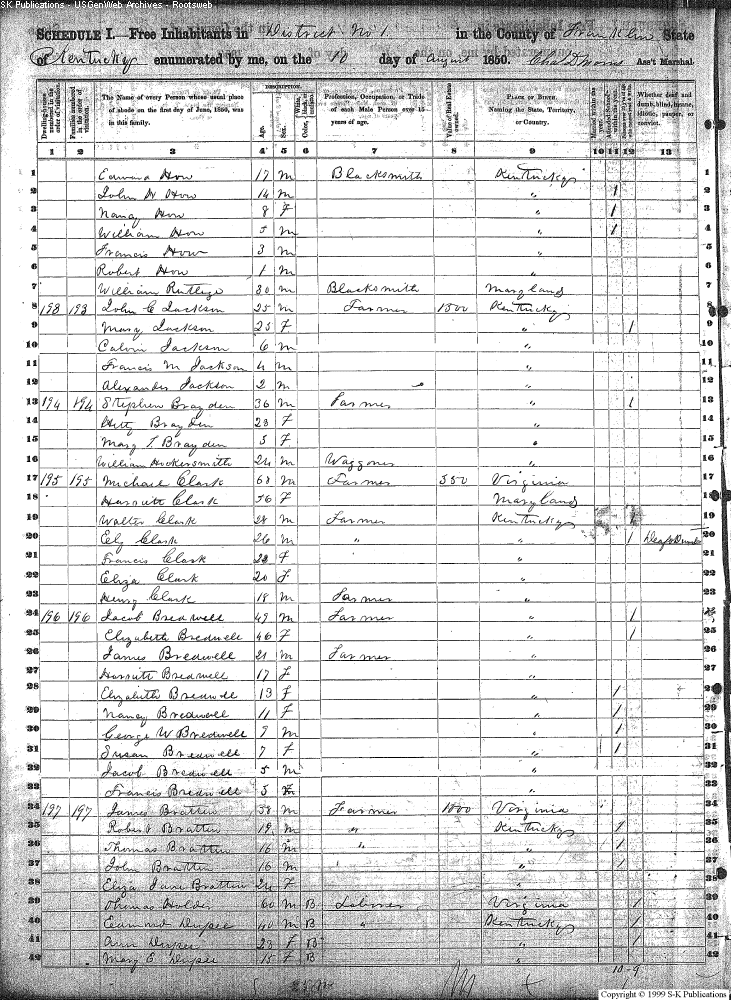 S-K Publications - USGenWeb Archives - Rootsweb
SCHEDULE I.—Free Inhabitants in District No 1 in the County of Franklin State
of Kentucky enumerated by me, on the 10 day of August 1850. Ass't Marshal
Dwelling-houses numbered in the order of visitation.
Families numbered in the order of visitation.
The Name of every Person whose usual place of abode on the first day of June, 1850, was in this family.
DESCRIPTION.
Age.
Sex.
Color,
Profession, Occupation, or Trade of each Male Person over 15 years of age.
Value of Real Estate owned.
PLACE OF BIRTH, Naming the State, Territory, or Country.
Whether deaf and dumb, blind, insane, idiotic, pauper, or convict.
1 2 3 4 5 6 7 8 9 10 11 12 13
1 Edmund How 17 M Blacksmith Kentucky 1
2 John W How 14 M " 1 2
3 Nancy How 8 F " 1 3
4 William How 5 M " 1 4
5 Francis How 3 M " 5
6 Robert How 1 M " 6
7 William Rutlige 30 M Blacksmith Maryland 7
8 193 193 John C Jackson 25 M Farmer 1500 Kentucky 8
9 Mary Jackson 25 F " 1 9
10 Calvin Jackson 6 M " 10
11 Francis M Jackson 4 M " 11
12 Alexander Jackson 2 M " 12
13 194 194 Stephen Brayden 36 M Farmer " 1 13
14 Hetty Brayden 23 F " 14
15 Mary T. Brayden 5 F " 15
16 William Hockersmith 24 M Waggoner " 16
17 195 195 Michael Clark 68 M Farmer 550 Virginia 17
18 Harriett Clark 56 F Maryland 18
19 Walter Clark 28 M Farmer Kentucky 19
20 Ely Clark 26 M " " 1 Deaf & Dumb 20
21 Francis Clark 23 F " 21
22 Eliza Clark 20 F " 22
23 Henry Clark 18 M Farmer 23
24 196 196 Jacob Bredwell 49 M Farmer " 1
25 Elizabeth Bredwell 46 F " 1 25
26 James Bredwell 21 M Farmer 26
27 Harriett Bredwell 17 F " 27
28 Elizabeth Bredwell 13 F " 1 28
29 Nancy Bredwell 11 F " 1 29
30 George W Bredwell 9 M " 1 30
31 Susan Bredwell 7 F " 1 31
32 Jacob Bredwell 5 M " 32
33 Francis Bredwell 3 " 33
34 197 197 James Bratten 58 M Farmer 1000 Virginia 34
35 Robert Bratten 19 M " Kentucky 1 35
36 Thomas Bratten 16 M " " 1 36
37 John Bratten 16 M " 1 37
38 Eliza Jane Bratten 24 F " 38
39 Thomas Holder 60 M B Laborer Virginia 1 39
40 Edmund Dupee 40 M B " Kentucky 1 40
41 Ann Dupee 23 F B " 1 41
42 Mary E Dupee 15 F B " 1 42
10-9
Copyright © 1999 S-K Publications